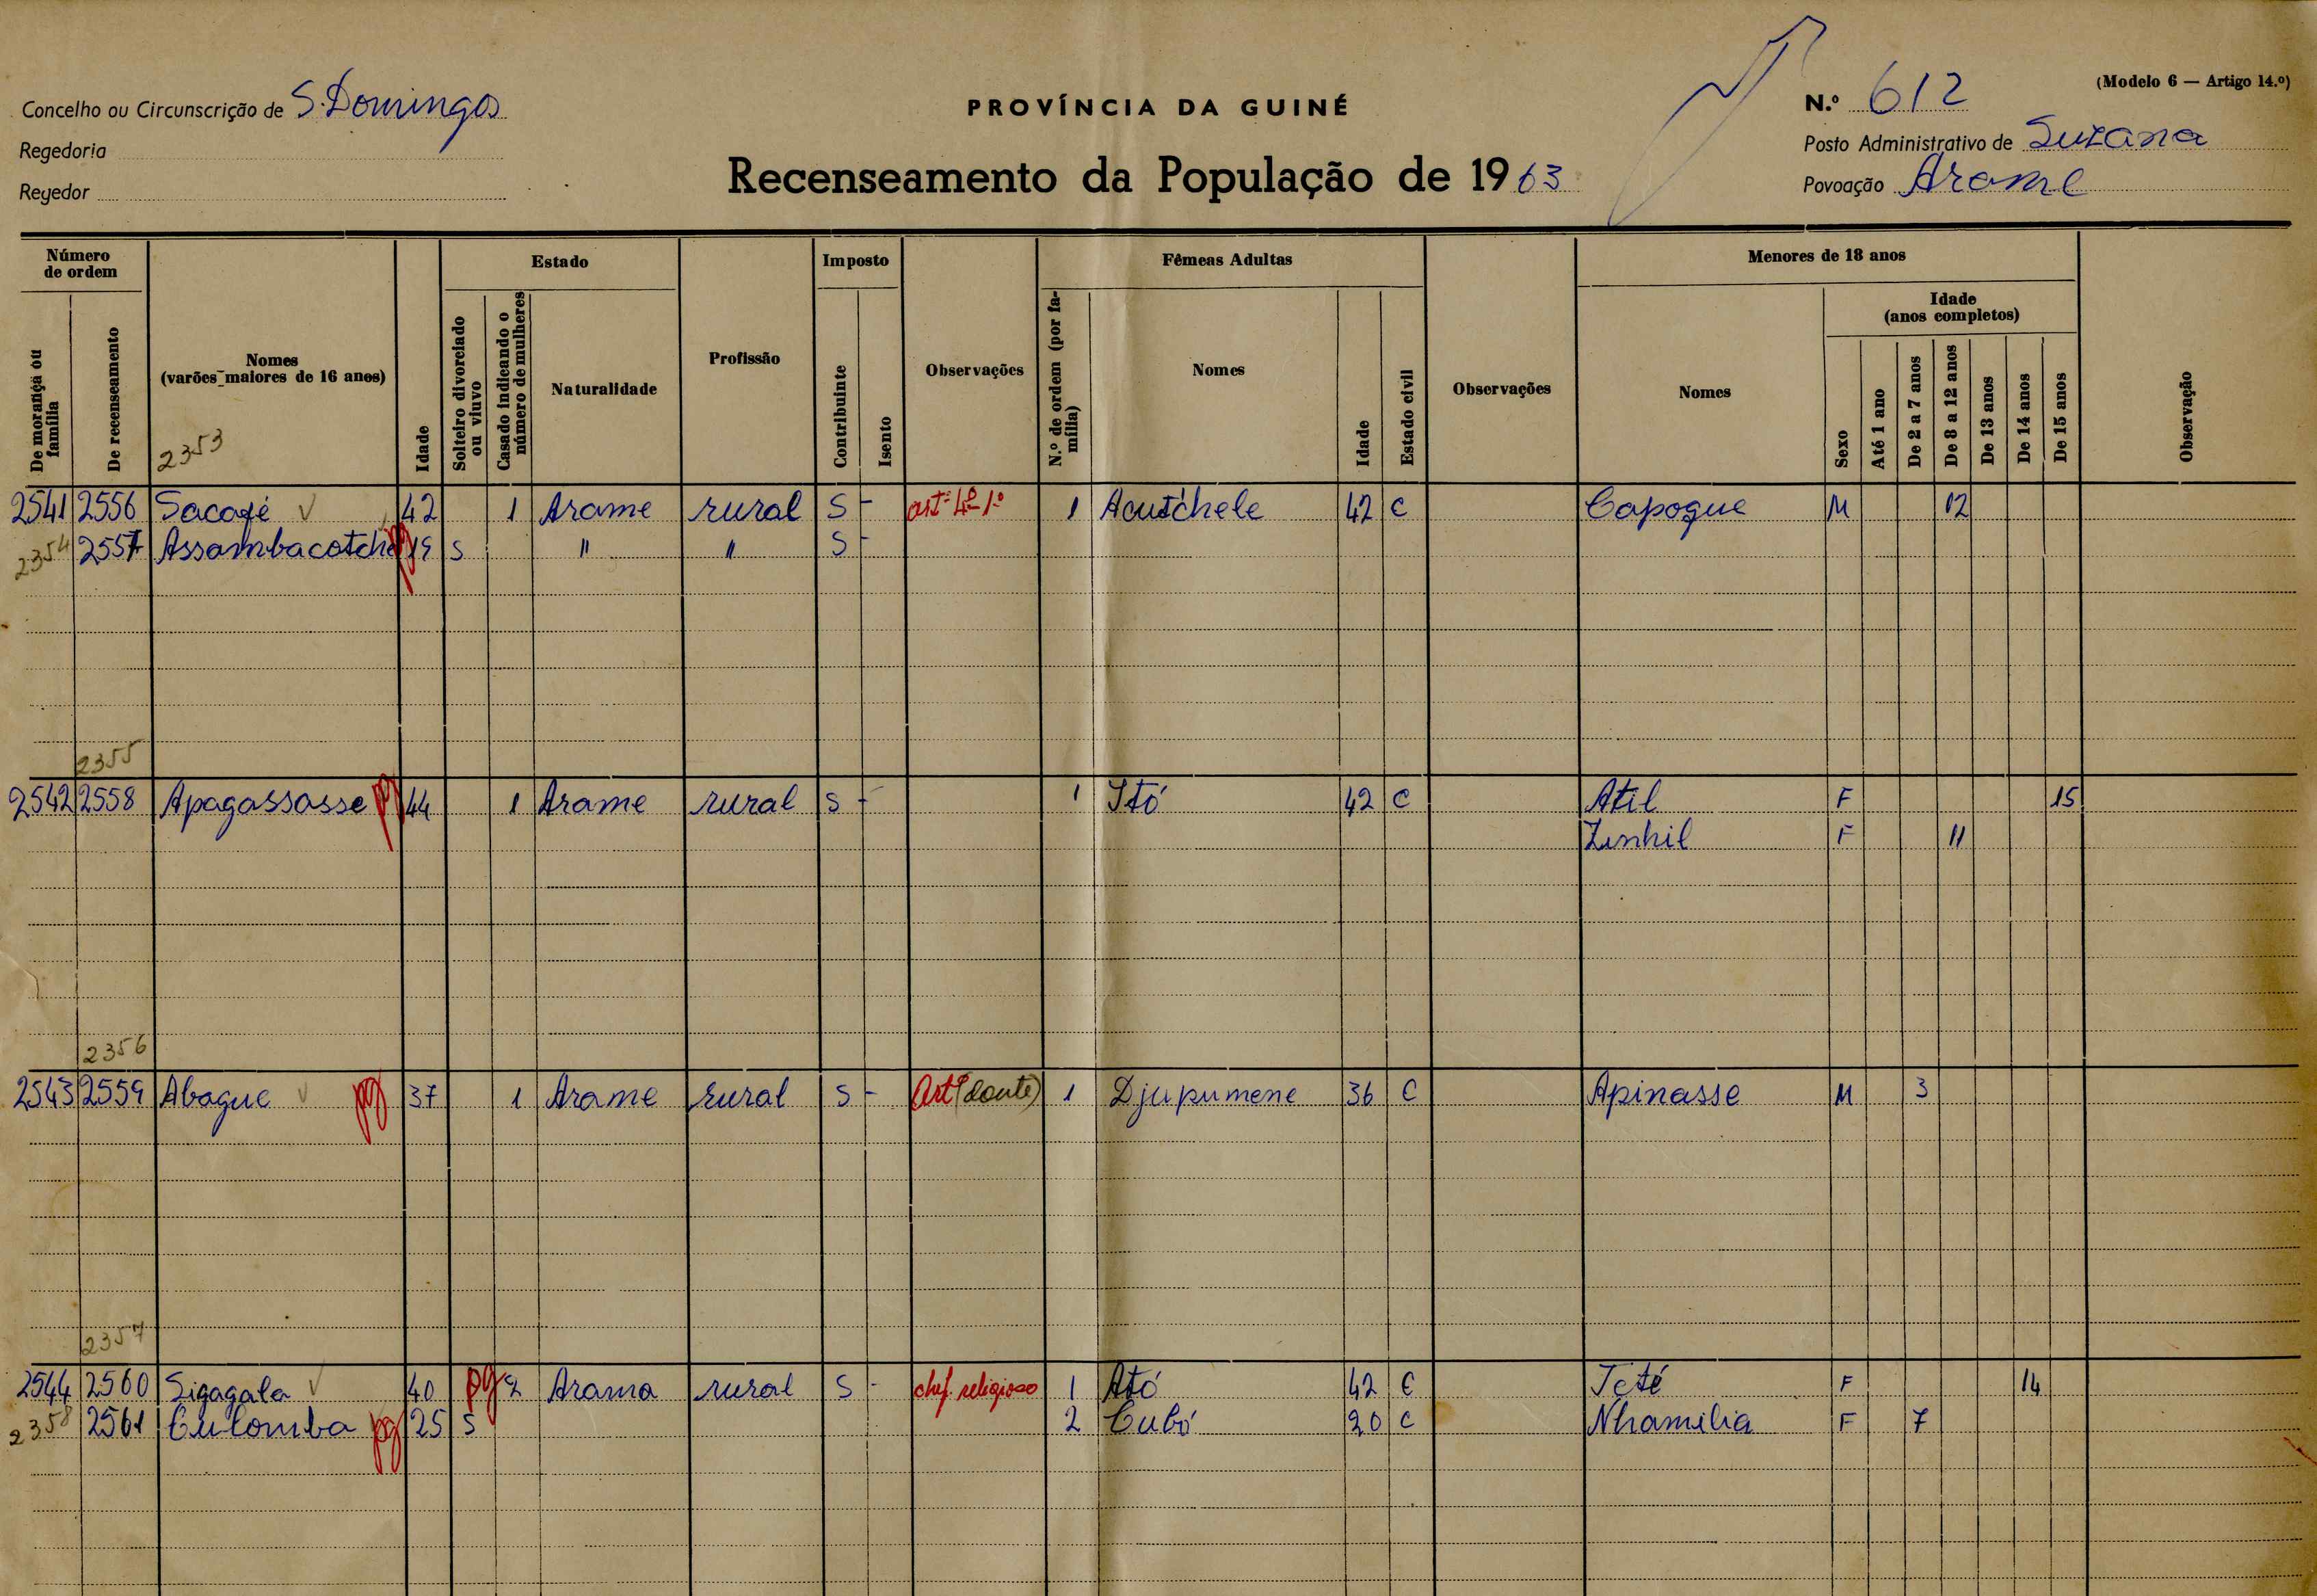 (Modelo 6 — Artigo 14.º)
Concelho ou Circunscrição de S. Domingos
PROVÍNCIA DA GUINÉ
N.º 612
Regedoria
Posto Administrativo de Suzana
Recenseamento da População de 1963
Regedor
Povoação Arame
Número de ordem
Estado
Imposto
Fêmeas Adultas
Menores de 18 anos
Idade (anos completos)
De morança ou família
De recenseamento
Nomes (varões maiores de 16 anos)
Idade
Solteiro divorciado ou viuvo
Casado indicando o número de mulheres
Naturalidade
Profissão
Contribuinte
Isento
Observações
N.º de ordem (por família)
Nomes
Idade
Estado civil
Observações
Nomes
Sexo
Até 1 ano
De 2 a 7 anos
De 8 a 12 anos
De 13 anos
De 14 anos
De 15 anos
Observação
2353
2541 2556 Sacagé 42 1 Arame rural S - artº 4º 1º 1 Acutchele 42 C Capogue M 12
2354 2557 Assambacotche 19 S " " S -
2355
2542 2558 Apagassasse pg 44 1 Arame rural S - 1 Itó 42 C Atil F 15
Zinhil F 11
2356
2543 2559 Abague pg 37 1 Arame rural S - Artº (doute) 1 Djupumene 36 C Apinasse M 3
2357
2544 2560 Sigagala 40 pg 2 Arama rural S - chef. religioso 1 Ató 42 C Teté F 14
2358 2561 Culomba pg 25 S 2 Cubó 20 C Nhamilia F 7